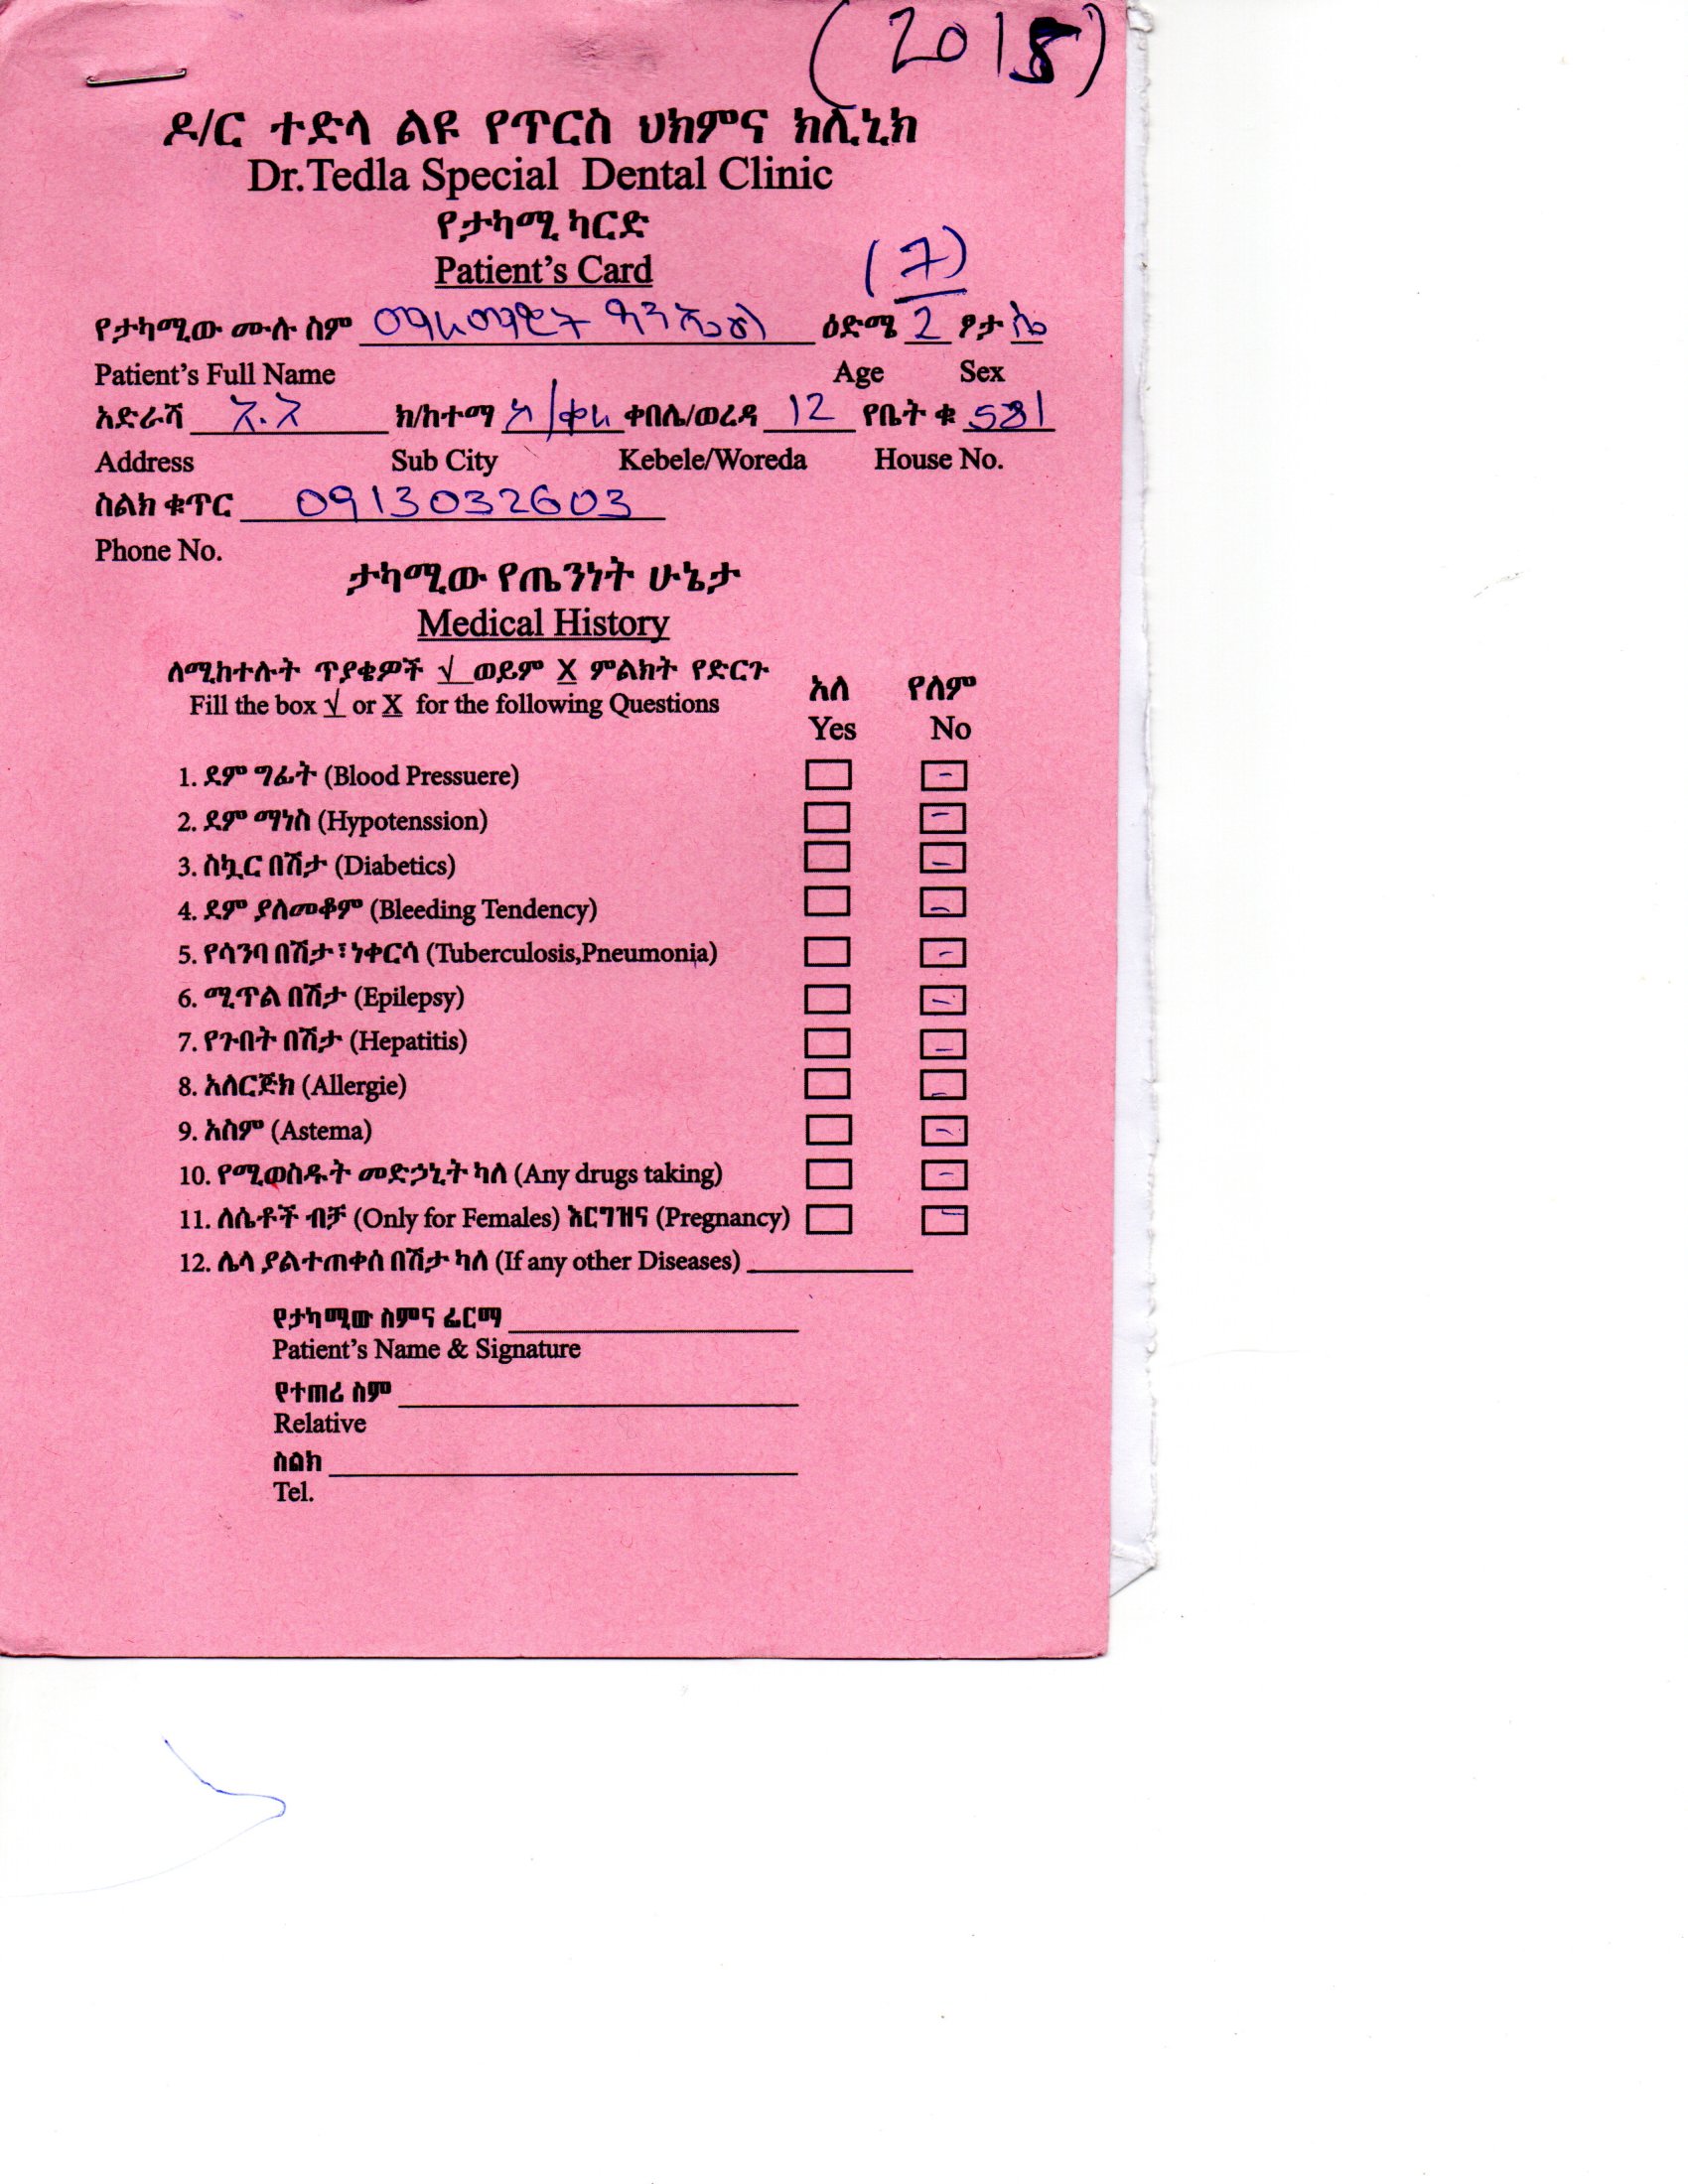 (2018)
ዶ/ር ተድላ ልዩ የጥርስ ህክምና ክሊኒክ
Dr.Tedla Special Dental Clinic
የታካሚ ካርድ
Patient's Card
(7)
የታካሚው ሙሉ ስም ዕድሜ 2 ፆታ ሴ
Patient's Full Name Age Sex
አድራሻ አ.አ ክ/ከተማ ቀበሌ/ወረዳ 12 የቤት ቁ 531
Address Sub City Kebele/Woreda House No.
ስልክ ቁጥር 0913032603
Phone No.
ታካሚው የጤንነት ሁኔታ
Medical History
ለሚከተሉት ጥያቄዎች √ ወይም X ምልክት የድርጉ
Fill the box √ or X for the following Questions
አለ የለም
Yes No
1. ደም ግፊት (Blood Pressuere) -
2. ደም ማነስ (Hypotenssion) -
3. ስኳር በሽታ (Diabetics) -
4. ደም ያለመቆም (Bleeding Tendency) -
5. የሳንባ በሽታ፣ነቀርሳ (Tuberculosis,Pneumonia) -
6. ሚጥል በሽታ (Epilepsy) -
7. የጉበት በሽታ (Hepatitis) -
8. አለርጅክ (Allergie) -
9. አስም (Astema) -
10. የሚወስዱት መድኃኒት ካለ (Any drugs taking) -
11. ለሴቶች ብቻ (Only for Females) እርግዝና (Pregnancy) -
12. ሌላ ያልተጠቀሰ በሽታ ካለ (If any other Diseases)
የታካሚው ስምና ፊርማ
Patient's Name & Signature
የተጠሪ ስም
Relative
ስልክ
Tel.